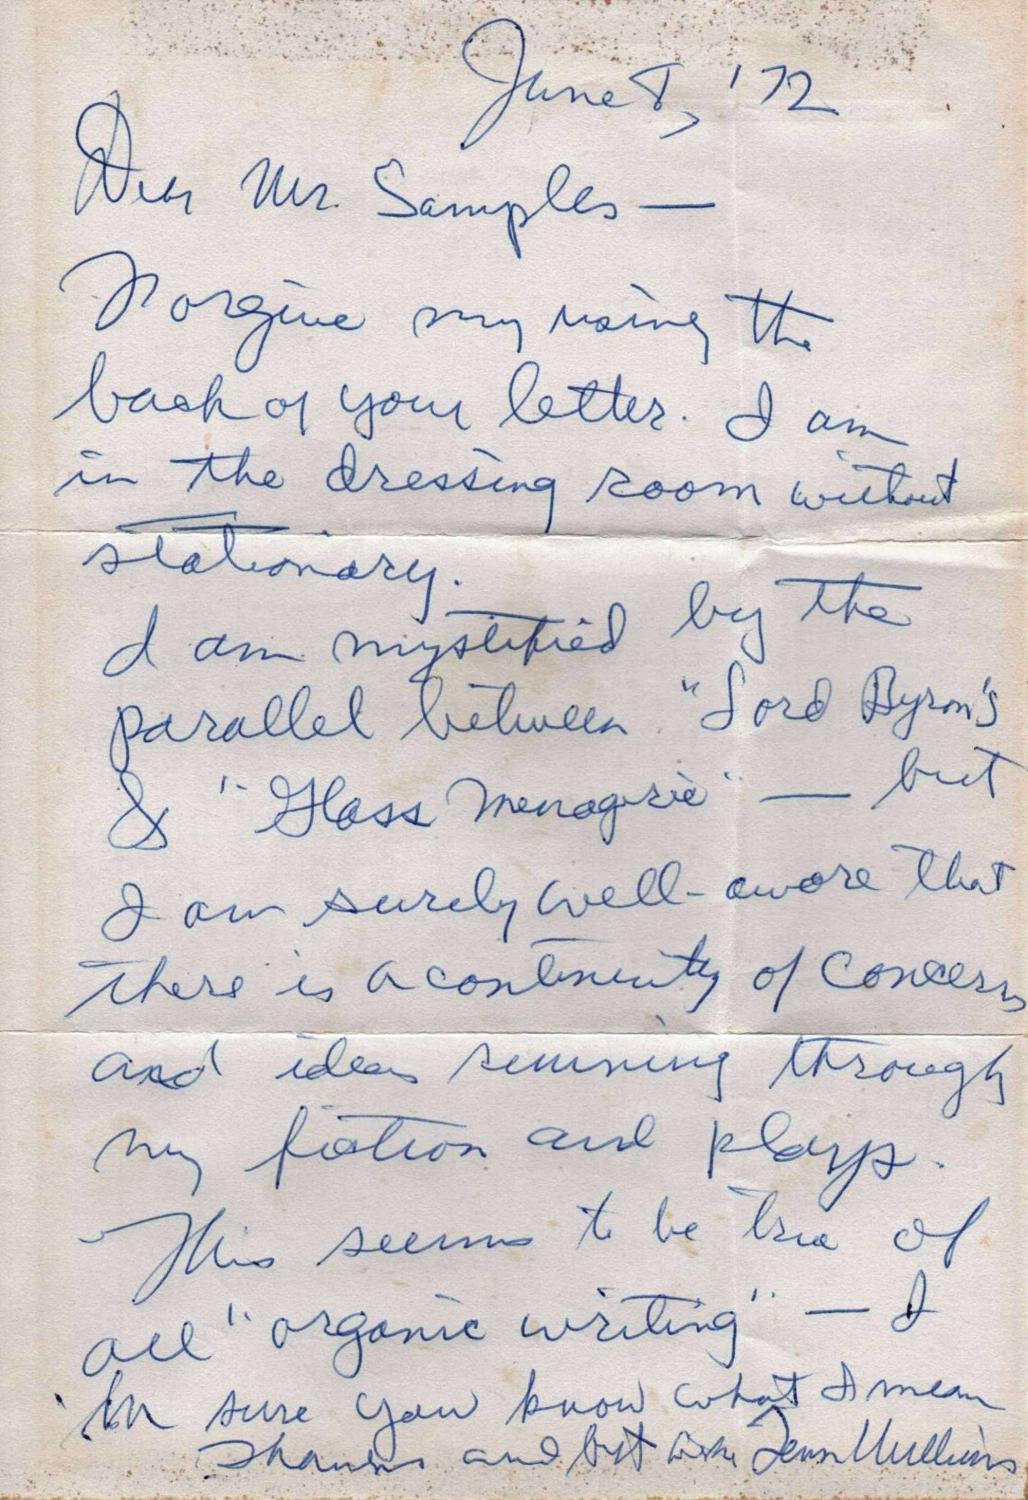 June 8, '72
Dear Mr. Samples —
Forgive my using the
back of your letter. I am
in the dressing room without
stationary.
I am mystified by the
parallel between "Lord Byron's
& "Glass Menagerie" — but
I am surely well-aware that
there is a continuity of concerns
and ideas running through
my fiction and plays.
This seems to be true of
all "organic writing" — I
'm sure you know what I mean
Thanks and best wishes Tenn Williams